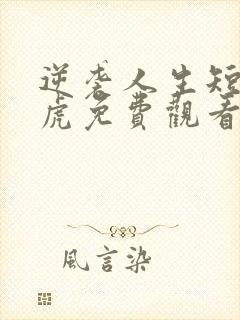 逆袭人生短
虎免費觀看
風言染